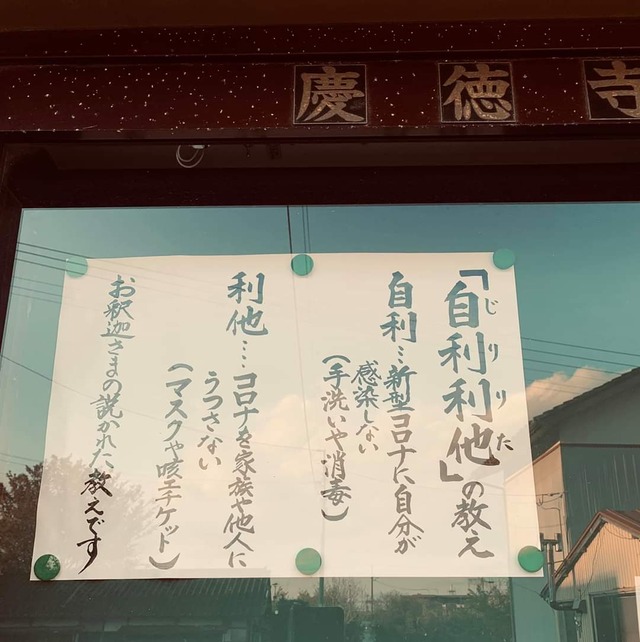 慶徳寺
「自利利他」の教え
じりりた
自利…新型コロナに自分が
感染しない
(手洗いや消毒)
利他…コロナを家族や他人に
うつさない
(マスクや咳エチケット)
お釈迦さまの説かれた教えです